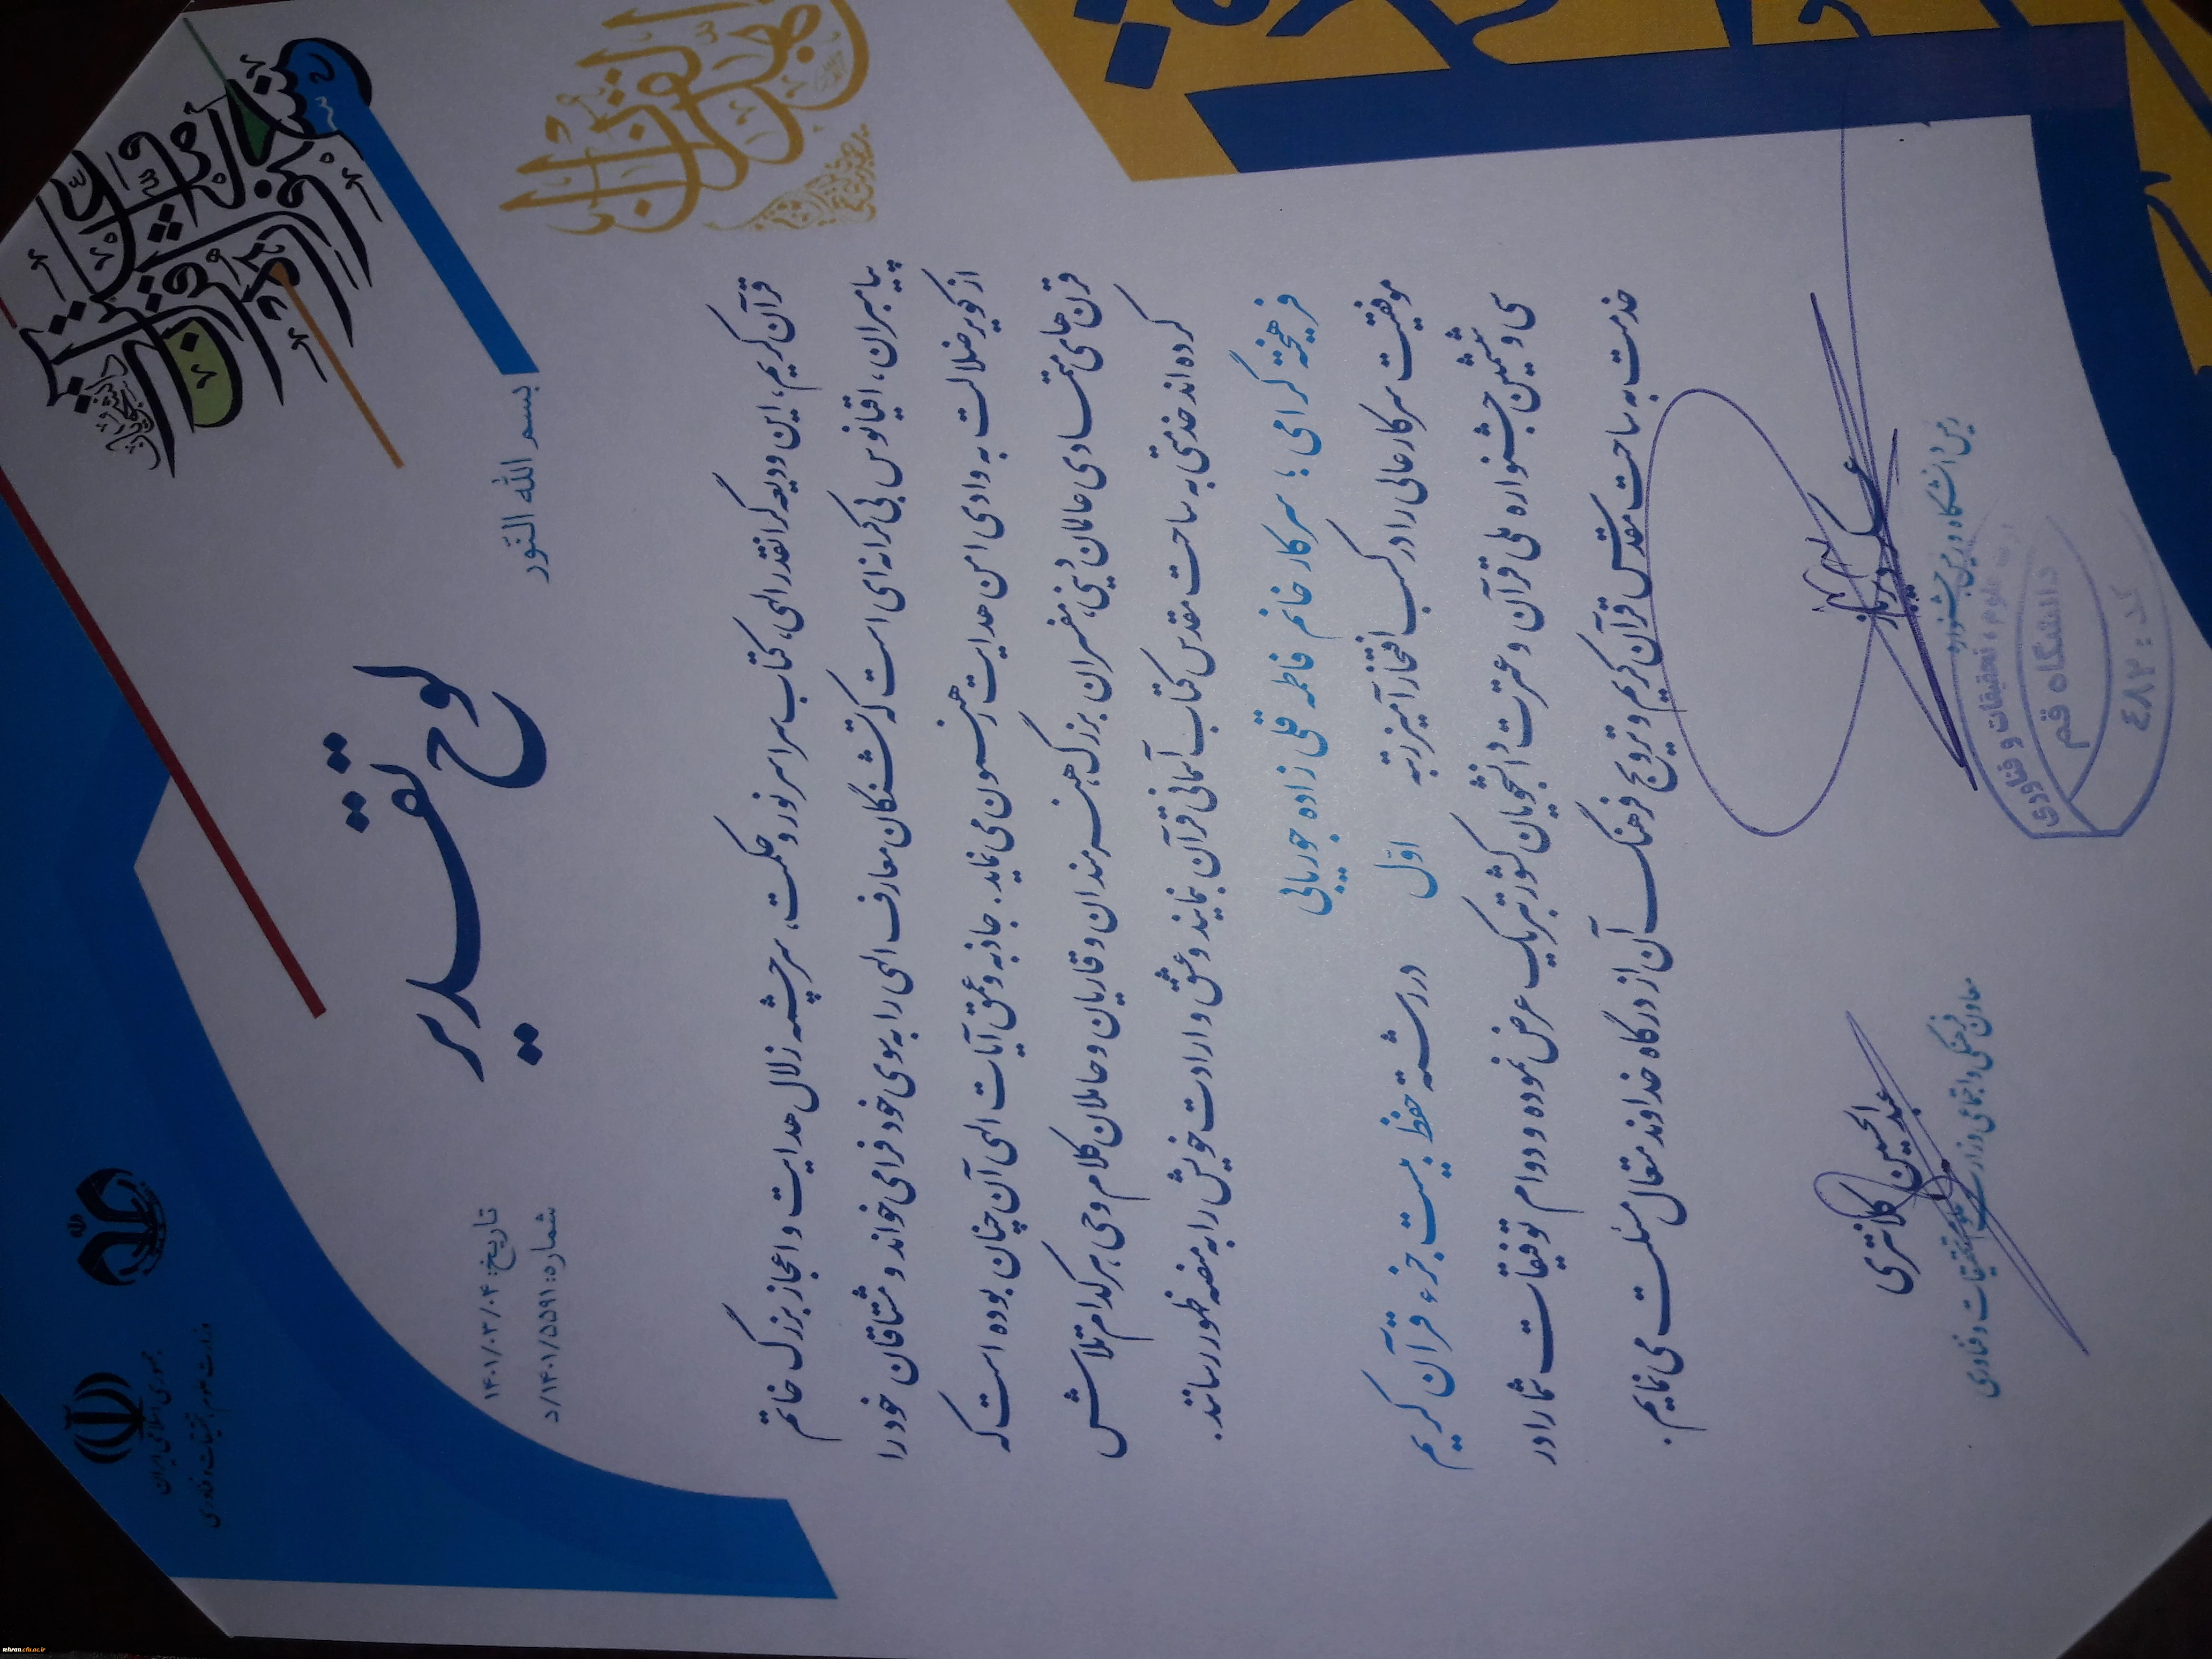 جمهوری اسلامی ایران
وزارت علوم، تحقیقات و فناوری
تاریخ: ۱۴۰۱/۰۳/۰۴
شماره: ۱۴۰۱/۵۵۹۱/د
بسم الله النّور
لوح تقدیر
قرآن کریم، این ودیعه گرانقدر الهی، کتاب سراسر نور و حکمت، سرچشمه زلال هدایت و اعجاز بزرگ خاتم
پیامبران، اقیانوس بی کرانه ای است که تشنگان معارف الهی را به سوی خود فرامی خواند و مشتاقان خود را
از کویر ضلالت به وادی امن هدایت رهنمون می نماید. جاذبه و عمق آیات الهی آن چنان بوده است که
قرن های متمادی عالمان دینی، مفسران بزرگ، هنرمندان و قاریان و حاملان کلام وحی، هر کدام تلاش
کرده اند خدمتی به ساحت مقدس کتاب آسمانی قرآن بنمایند و عشق و ارادت خویش را به منصه ظهور رسانند.
فرهیخته گرامی؛ سرکار خانم فاطمه قلی زاده جوریابی
موفقیت سرکارعالی را در کسب افتخارآمیز رتبه اوّل در رشته حفظ بیست جزء قرآن کریم
سی و ششمین جشنواره ملی قرآن و عترت دانشجویان کشور تبریک عرض نموده و دوام توفیقات شما را در
خدمت به ساحت مقدس قرآن کریم و ترویج فرهنگ آن از درگاه خداوند متعال مسئلت می نمایم.
رئیس دانشگاه و رئیس جشنواره
عبدالحسین کلانتری
معاون فرهنگی و اجتماعی وزارت علوم، تحقیقات و فناوری
وزارت علوم، تحقیقات و فناوری
دانشگاه قم
کد: ٤٨٢
tehran.cfu.ac.ir